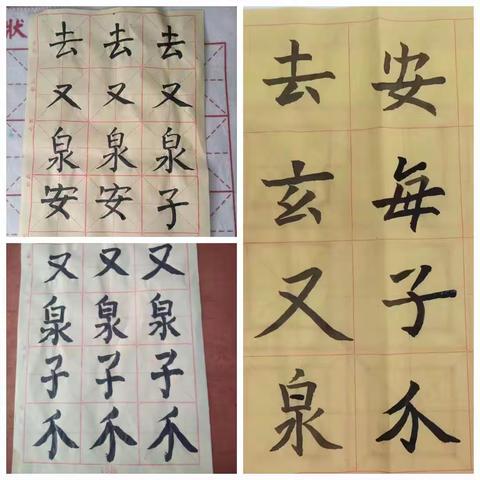 状
去去去
又又又
泉泉泉
安安子
又又又
泉泉泉
子子子
去安
玄每
又子
泉